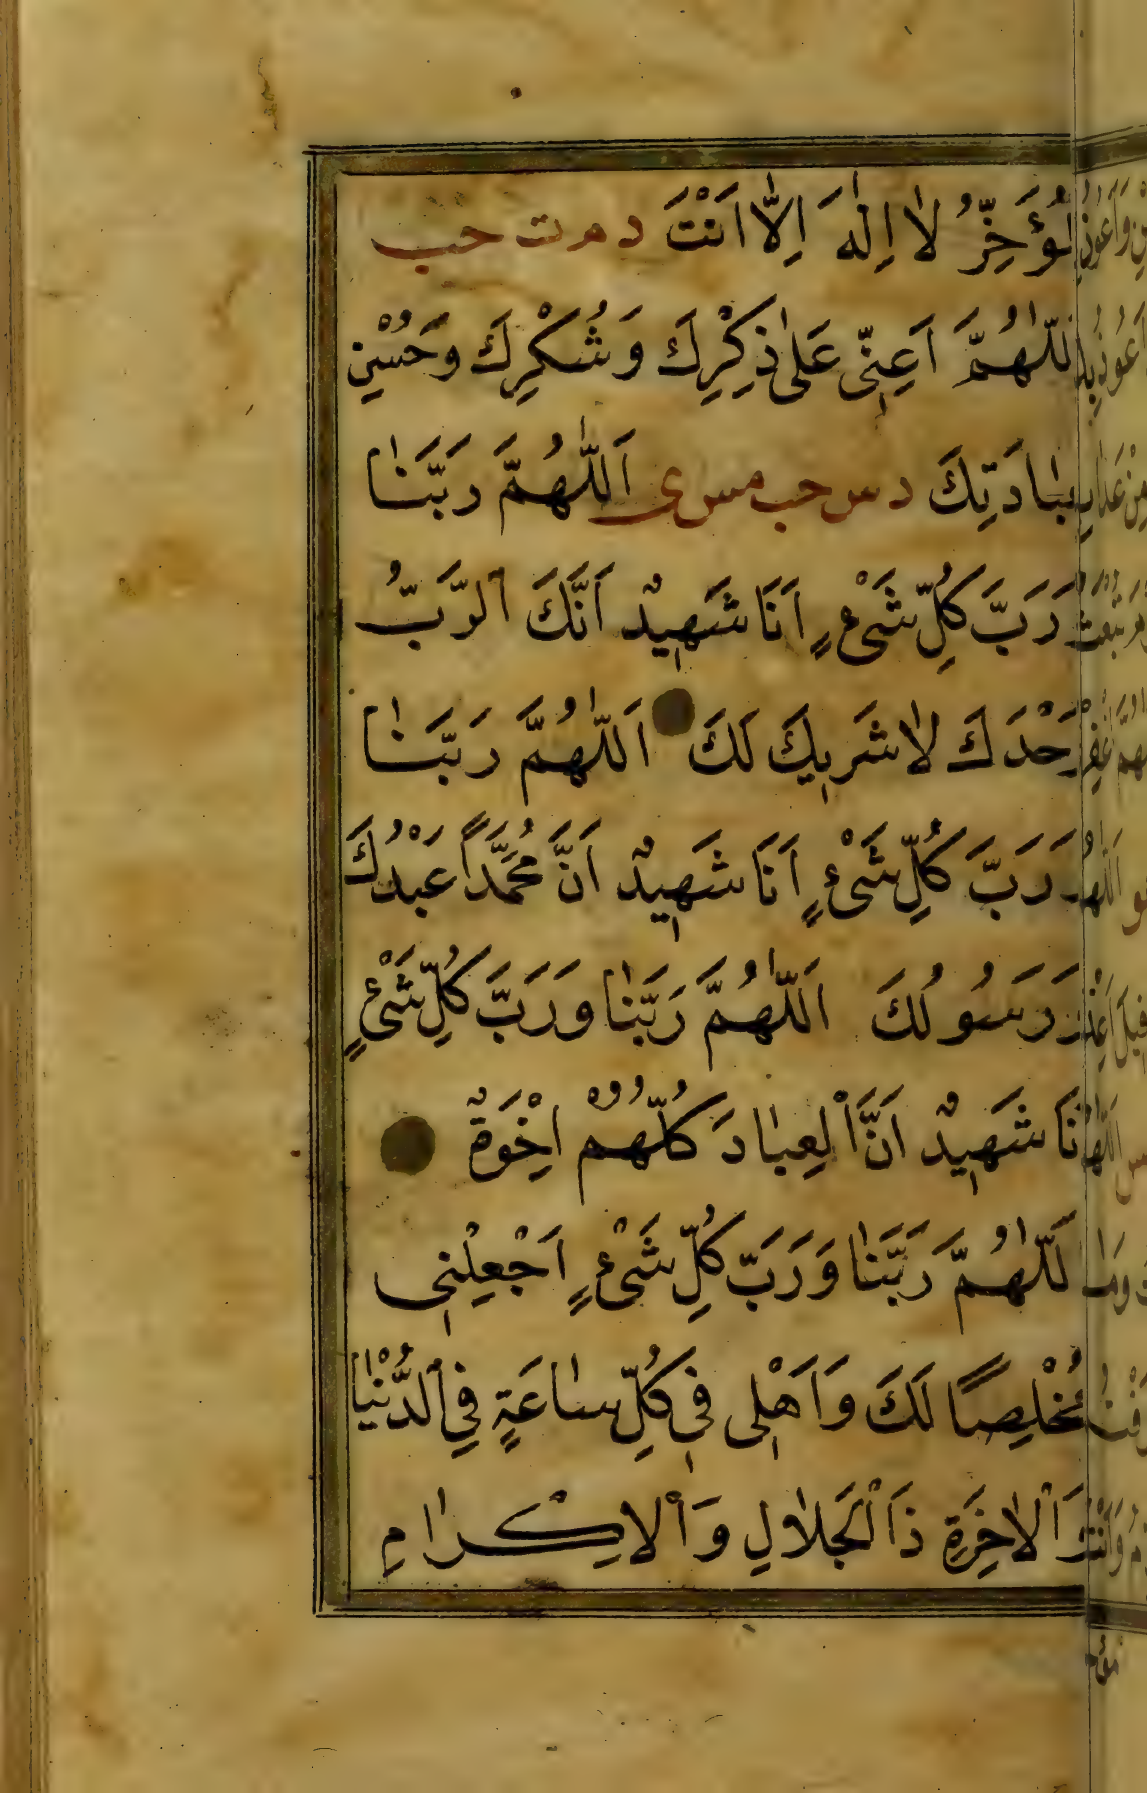 لْمُؤَخِّرُ لَا اِلٰهَ اِلَّا اَنْتَ د م ت حب
اَللّٰهُمَّ اَعِنّٖى عَلٰى ذِكْرِكَ وَشُكْرِكَ وَحُسْنِ
عِبَادَتِكَ د س حب مس ى اَللّٰهُمَّ رَبَّنَا
وَرَبَّ كُلِّ شَىْءٍ اَنَا شَهٖيدٌ اَنَّكَ الرَّبُّ
وَحْدَكَ لَا شَرٖيكَ لَكَ اَللّٰهُمَّ رَبَّنَا
وَرَبَّ كُلِّ شَىْءٍ اَنَا شَهٖيدٌ اَنَّ مُحَمَّدًا عَبْدُكَ
وَرَسُولُكَ اَللّٰهُمَّ رَبَّنَا وَرَبَّ كُلِّ شَىْءٍ
اَنَا شَهٖيدٌ اَنَّ الْعِبَادَ كُلُّهُمْ اِخْوَةٌ
اَللّٰهُمَّ رَبَّنَا وَرَبَّ كُلِّ شَىْءٍ اَجْعِلْنٖى
مُخْلِصًا لَكَ وَاَهْلٖى فٖى كُلِّ سَاعَةٍ فِى الدُّنْيَا
وَالْاٰخِرَةِ ذَا الْجَلَالِ وَالْاِكْرَامِ